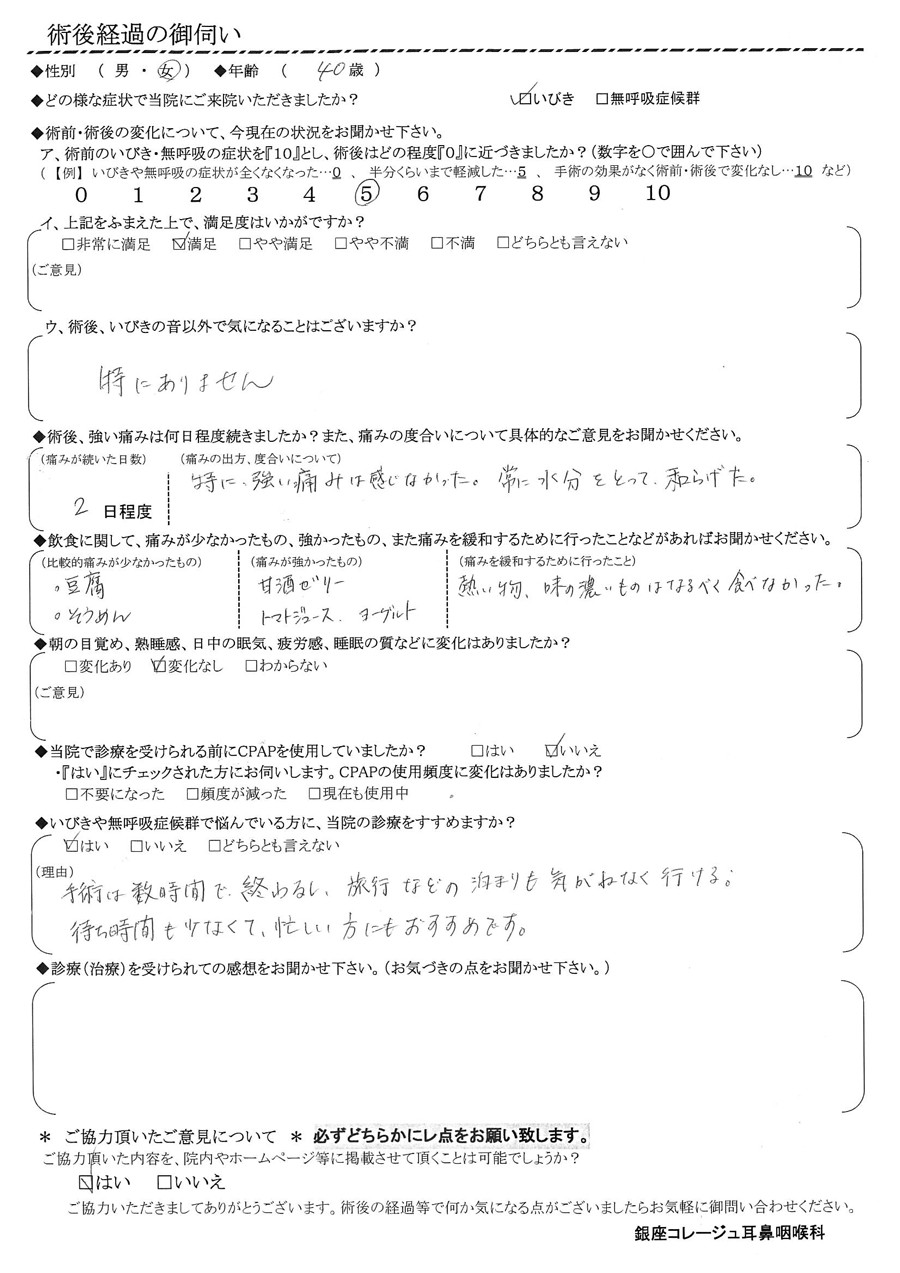 術後経過の御伺い
◆性別 ( 男 ・ 女 ) ◆年齢 ( 40 歳 )
◆どの様な症状で当院にご来院いただきましたか? ☑いびき □無呼吸症候群
◆術前・術後の変化について、今現在の状況をお聞かせ下さい。
ア、術前のいびき・無呼吸の症状を『10』とし、術後はどの程度『0』に近づきましたか?(数字を〇で囲んで下さい)
(【例】いびきや無呼吸の症状が全くなくなった…0 、 半分くらいまで軽減した…5 、 手術の効果がなく術前・術後で変化なし…10 など)
0 1 2 3 4 5 6 7 8 9 10
イ、上記をふまえた上で、満足度はいかがですか?
□非常に満足 ☑満足 □やや満足 □やや不満 □不満 □どちらとも言えない
(ご意見)
ウ、術後、いびきの音以外で気になることはございますか?
特にありません
◆術後、強い痛みは何日程度続きましたか?また、痛みの度合いについて具体的なご意見をお聞かせください。
(痛みが続いた日数) (痛みの出方、度合いについて)
特に、強い痛みは感じなかった。常に水分をとって、和らげた。
2 日程度
◆飲食に関して、痛みが少なかったもの、強かったもの、また痛みを緩和するために行ったことなどがあればお聞かせください。
(比較的痛みが少なかったもの) (痛みが強かったもの) (痛みを緩和するために行ったこと)
。豆腐 甘酒ゼリー 熱い物、味の濃いものはなるべく食べなかった。
。そうめん トマトジュース、ヨーグルト
◆朝の目覚め、熟睡感、日中の眠気、疲労感、睡眠の質などに変化はありましたか?
□変化あり ☑変化なし □わからない
(ご意見)
◆当院で診療を受けられる前にCPAPを使用していましたか? □はい ☑いいえ
・『はい』にチェックされた方にお伺いします。CPAPの使用頻度に変化はありましたか?
□不要になった □頻度が減った □現在も使用中
◆いびきや無呼吸症候群で悩んでいる方に、当院の診療をすすめますか?
☑はい □いいえ □どちらとも言えない
(理由)
手術は数時間で、終わるし、旅行などの泊まりも気がねなく行ける。
待ち時間も少なくて、忙しい方にもおすすめです。
◆診療(治療)を受けられての感想をお聞かせ下さい。(お気づきの点をお聞かせ下さい。)
* ご協力頂いたご意見について * 必ずどちらかにレ点をお願い致します。
ご協力頂いた内容を、院内やホームページ等に掲載させて頂くことは可能でしょうか?
☑はい □いいえ
ご協力いただきましてありがとうございます。術後の経過等で何か気になる点がございましたらお気軽に御問い合わせください。
銀座コレージュ耳鼻咽喉科